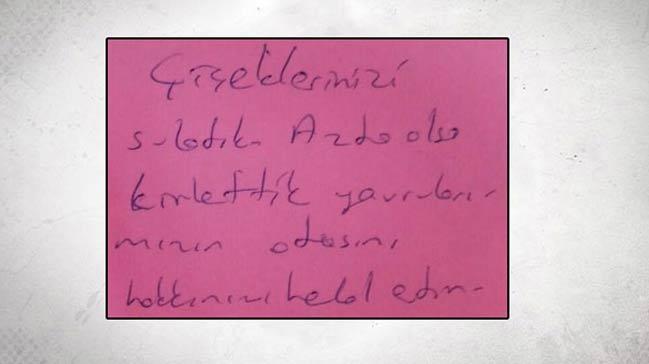 Çiçeklerinizi
suladık. Azda olsa
kirlettik yavruları-
mızın odasını
hakkınızı helal edin-